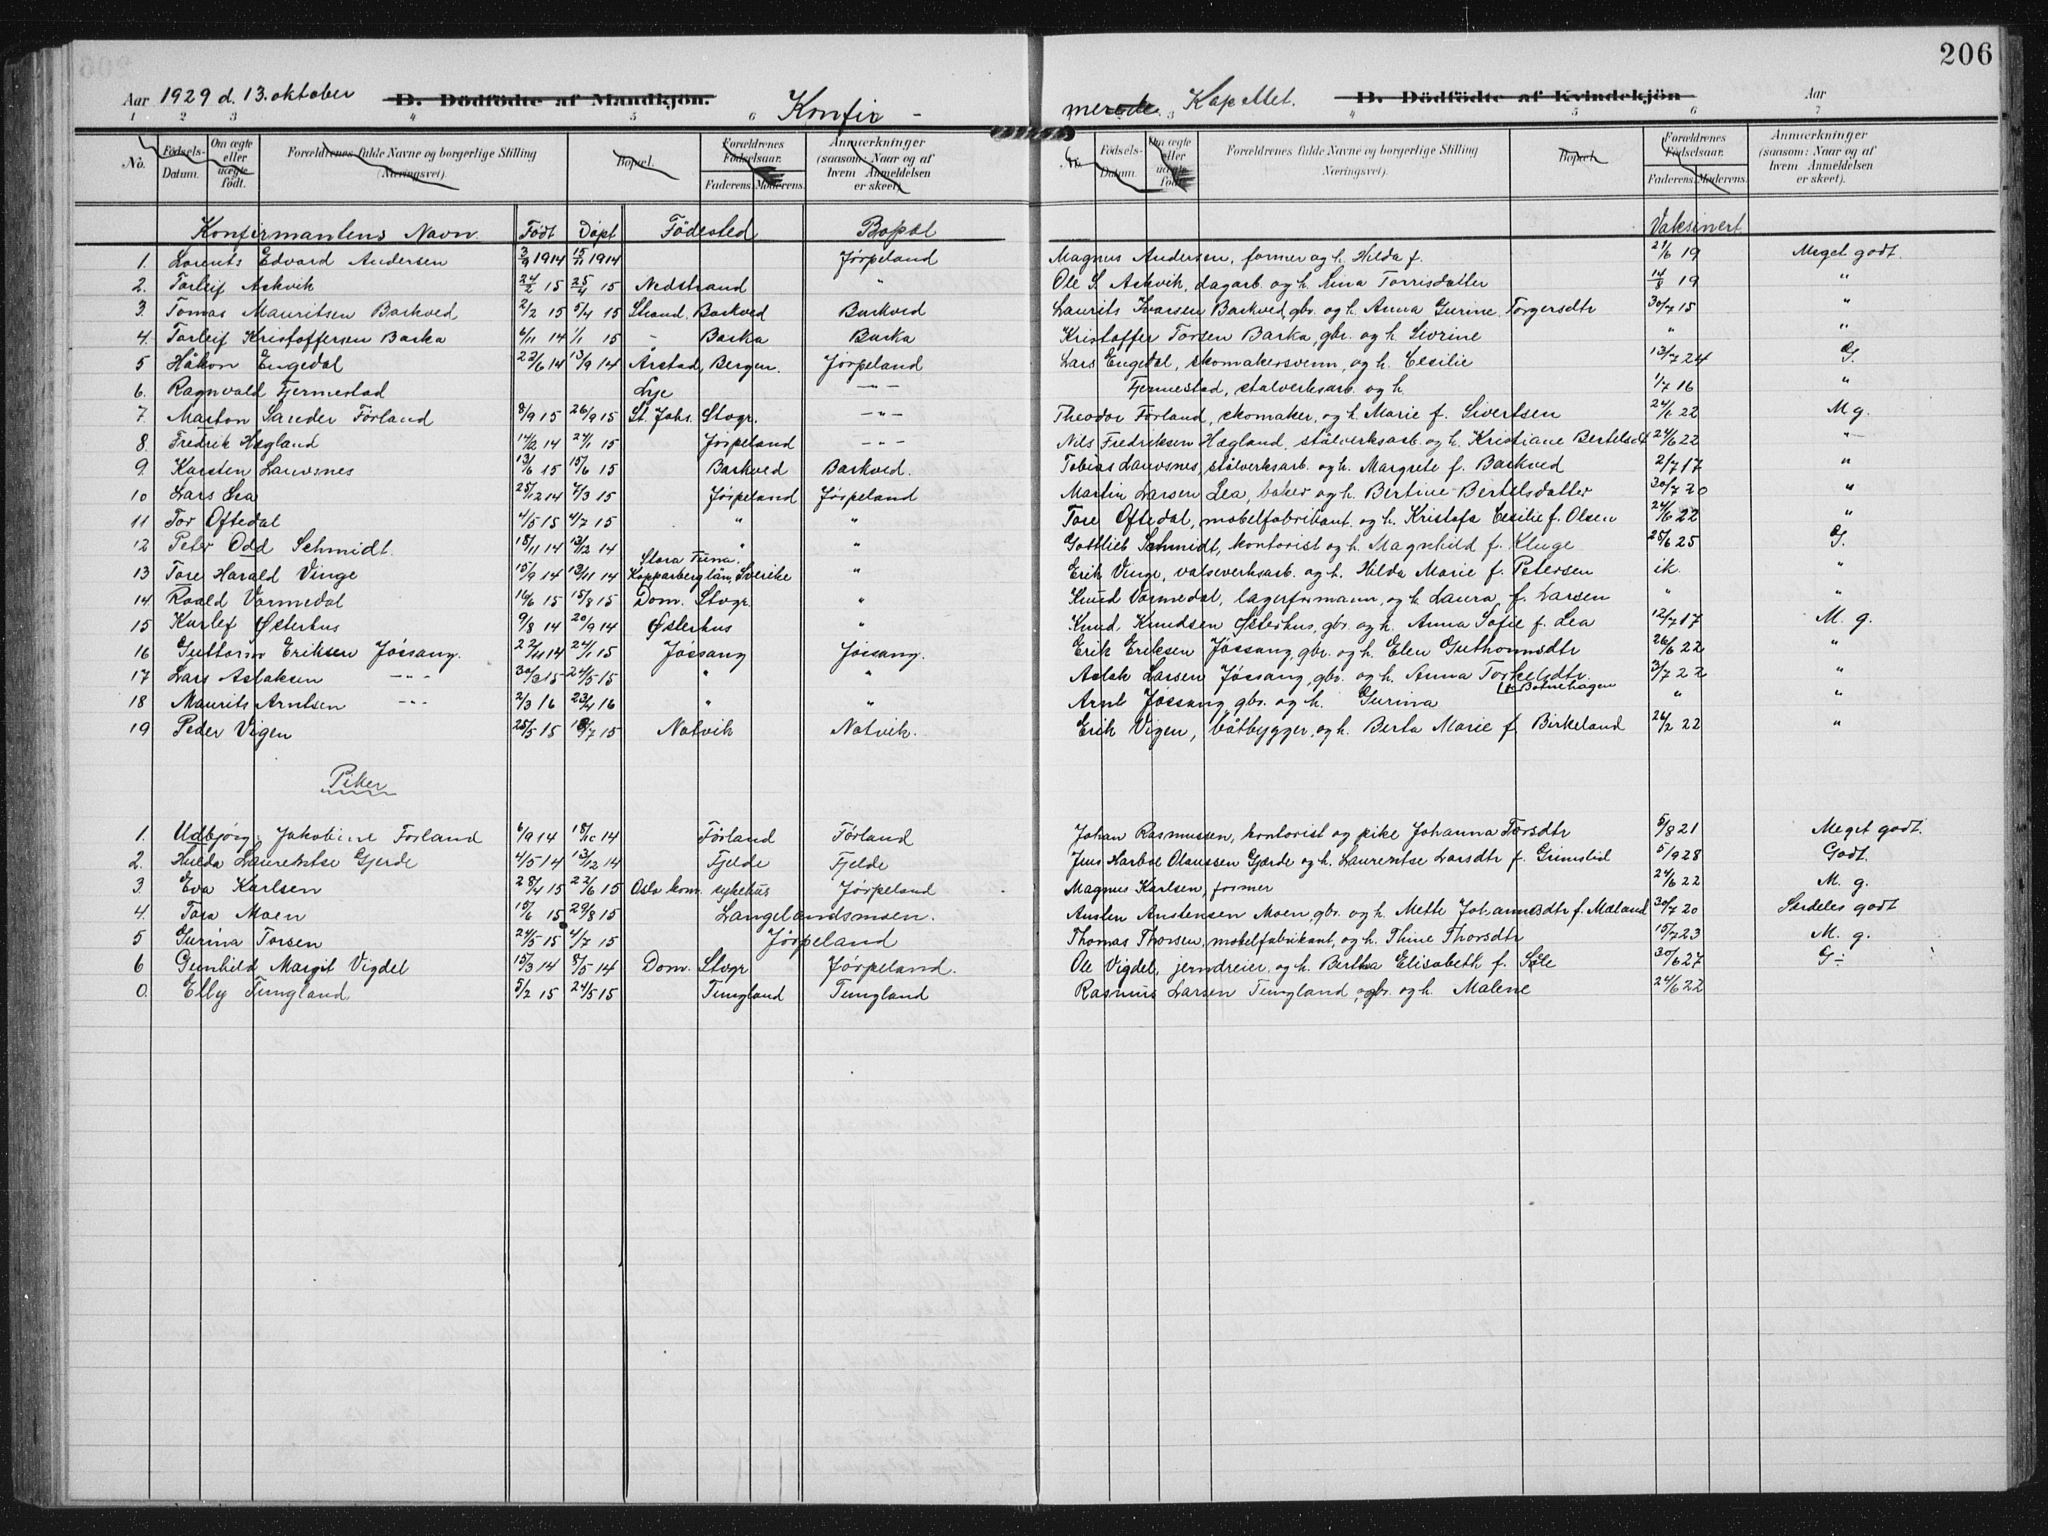 206
Aar 1929 d. 13. oktober B. Dödfödte af Mandkjön. Konfir-
merede Kapellet. B. Dödfödte af Kvindekjön Aar
1 2 3 4 5 6
3 4 5 6 7
No. Födsels-Datum. Om ægte eller uægte födt. Forældrenes fulde Navne og borgerlige Stilling (Næringsvei). Bopæl. Forældrenes Födselsaar. Faderens. Moderens. Anmærkninger (saasom: Naar og af hvem Anmeldelsen er skeet).
No. Födsels-Datum. Om ægte eller uægte födt. Forældrenes fulde Navne og borgerlige Stilling Næringsvei). Bopæl. Forældrenes Födselsaar. Faderens. Moderens. Anmærkninger (saasom: Naar og af hvem Anmeldelsen er skeet).
Konfirmantens Navn. Födt Döpt Födested Bopæl Vaksinert
1. Lorents Edvard Andersen 3/9 1914 15/11 1914 Jörpeland Magnus Andersen, former og h. Hilda f. 21/6 19 Meget godt.
2. Torleif Askvik 24/2 15 25/4 15 Nedstrand " Ole S. Askvik, dagarb. og h. Lina Torrisdatter 14/8 19 "
3. Tomas Mauritsen Barkved 2/2 15 5/4 15 Strand, Barkved Barkved Laurits Ivarsen Barkved gbr. og h. Anna Gurine Torgersdtr 30/7 15 "
4. Torleif Kristoffersen Barka 6/11 14 1/1 15 - Barka Barka Kristoffer Torsen Barka, gbr. og h. Sivrine " "
5 Håkon Engedal 22/6 14 13/9 14 Årstad, Bergen. Jörpeland Lars Engedal, skomakersvenn, og h. Cecilie 13/7 24 G.
6. Ragnvald Tjermestad Lye -"- Tjermestad, stålverksarb. og h. 1/7 16 "
7. Marton Sander Förland 8/9 15 26/9 15 St. Johs. Stvgr. -"- Theodor Förland, skomaker, og h. Marie f. Sivertsen 24/1 22 M g.
8. Fredrik Hægland 14/12 14 24/1 15 Jörpeland -"- Nils Fredriksen Hægland, stålverksarb. og h. Kristiane Bertelsdt 24/6 22 "
9. Karsten Lauvsnes 13/6 15 15/6 15 Barkved Barkved. Tobias Lauvsnes, stålverksarb. og h. Margrete f. Barkved 2/7 17 "
10 Lars Lea 25/12 14 7/3 15 Jörpeland Jörpeland Martin Larsen Lea, baker og h. Bertine Bertelsdatter 30/7 20 "
11 Tor Oftedal 4/5 15 4/7 15 " " Tore Oftedal, møbelfabrikant og h. Kristofa Cecilie f. Olsen 24/6 22 "
12 Peter Odd Schmidt. 18/11 14 13/12 14 " " Gottlieb Schmidt, kontorist og h. Magnhild f. Kluge 25/6 25 G.
Stora Tuna.
13 Tore Harald Vinge 15/9 14 13/11 14 Kopparbergslän, Sverike " Erik Vinge, valseverksarb. og h. Hilda Marie f. Petersen ik. "
14 Roald Vormedal 16/6 15 15/8 15 Dom. Stvgr. " Knud Vormedal, lagerformann, og h. Laura f. Larsen " "
15 Karlef Østerhus 9/8 14 20/9 14 Østerhus " Knud Knudsen Østerhus, gbr. og h. Anna Sofie f. Lea 12/7 17 M. g.
16 Guttorm Eriksen Jössang. 22/11 14 24/1 15 Jössang Jössang. Erik Eriksen Jössang, gbr. og h. Elen Guthormsdtr 26/6 22 "
17 Lars Aslaksen -"- 30/3 15 24/5 15 " " Aslak Larsen Jössang, gbr. og h. Anna Torkelsdtr. 3/7 22 "
Botnehagen
18 Maurits Arntsen -"- 2/3 16 23/4 16 " " Arnt Jössang, gbr. og h. Gurina " "
19 Peder Vigen 25/5 15 18/7 15 Notvik Notvik. Erik Vigen, båtbygger, og h. Berta Marie f. Birkeland 26/2 22 "
Piker
1. Udbjørg Jakobine Förland 6/9 14 18/10 14 Förland Förland Johan Rasmussen, kontorist og pike Johanna Torsdtr 5/8 21 Meget godt.
2. Hulda Laurentse Gjerde 4/5 14 13/12 14 Fjelde Fjelde Jens Harboe Olaussen Gjærde og h. Laurentse Larsdtr f. Grimslid 5/9 28 Godt.
3 Eva Karlsen 28/4 15 22/6 15 Oslo kom. sykehus Jörpeland Magnus Karlsen, former 24/6 22 M. g.
4. Tora Moen 15/6 15 29/8 15 Langelandsmoen. Austen Anstensen Moen, gbr. og h. Mette Johannesdtr f. Mæland 30/7 20 Særdeles godt
5 Gurina Torsen 24/5 15 4/7 15 Jörpeland Thomas Thorsen, møbelfabrikant, og h. Thine Thorsdtr 15/7 23 M. g.
6 Gunhild Margit Vigdel 15/3 14 8/5 14 Dom. Stvgr Jörpeland. Ole Vigdel, jerndreier, og h. Bertha Elisabeth f. Sele 30/6 27 G
0. Elly Tungland 5/2 15 24/5 15 Tungland Tungland Rasmus Larsen Tungland, gbr. og h. Malene 24/6 22